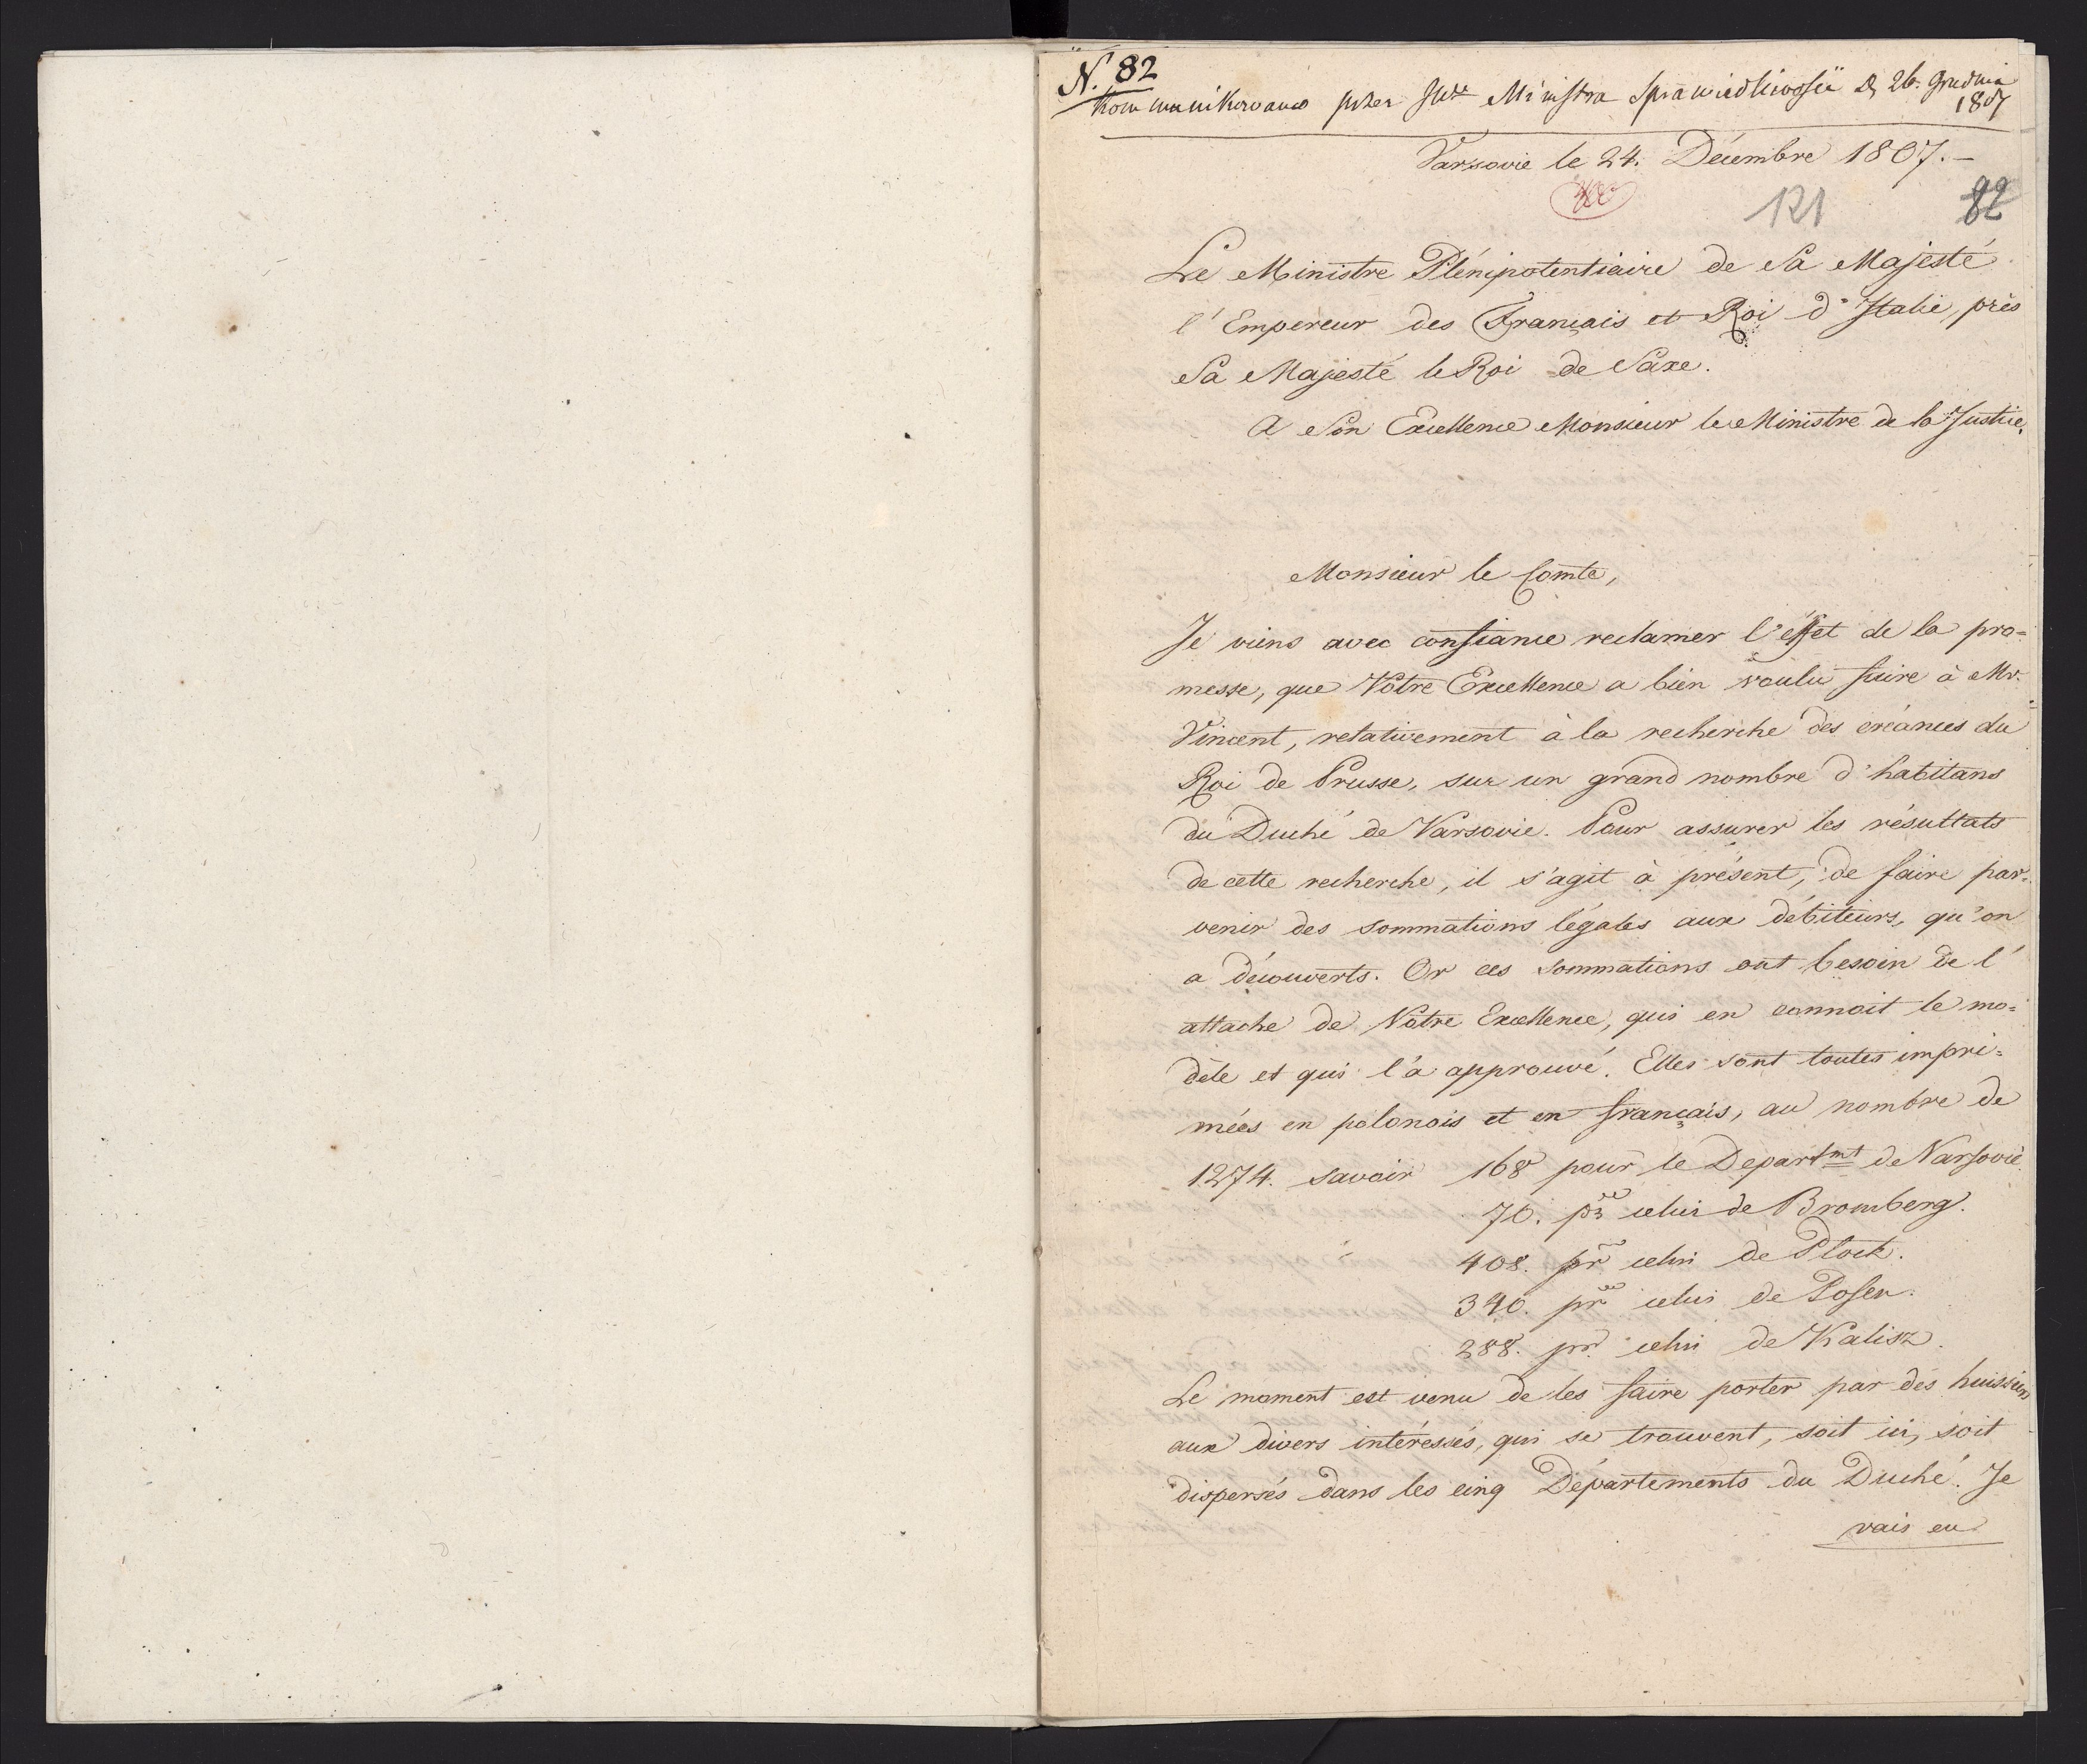 N. 82
Kommunikowano przez JWo Ministra Sprawiedliwości D. 26. Grudnia
1807
Varsovie le 24. Décembre 1807. –
121 82
Le Ministre Plénipotentiaire de Sa Majesté
l'Empereur des Français et Roi d'Italie, près
Sa Majesté le Roi de Saxe.
A Son Excellence Monsieur le Ministre de la Justice.
Monsieur le Comte,
Je viens avec confiance reclamer l'éffet de la pro=
messe, que Votre Excellence a bien voulu faire à Mr.
Vincent, relativement à la recherche des créances du
Roi de Prusse, sur un grand nombre d'habitans
du Duché de Varsovie. Pour assurer les résultats
de cette recherche, il s'agit à présent, de faire par=
venir des sommations légales aux débiteurs, qu'on
a découverts. Or ces sommations ont besoin de l'
attache de Votre Excellence, qui en connoit le mo=
dèle et qui l'a approuvé. Elles sont toutes impri=
mées en polonois et en français, au nombre de
1274. savoir 168 pour le Departmt de Varsovie.
70. pr celui de Bromberg.
408. pr celui de Plock.
340. pr celui de Posen.
288. pr celui de Kalisz.
Le moment est venu de les faire porter par des huissiers
aux divers intéressés, qui se trouvent, soit ici, soit
dispersés dans les cinq Départements du Duché. Je
vais en